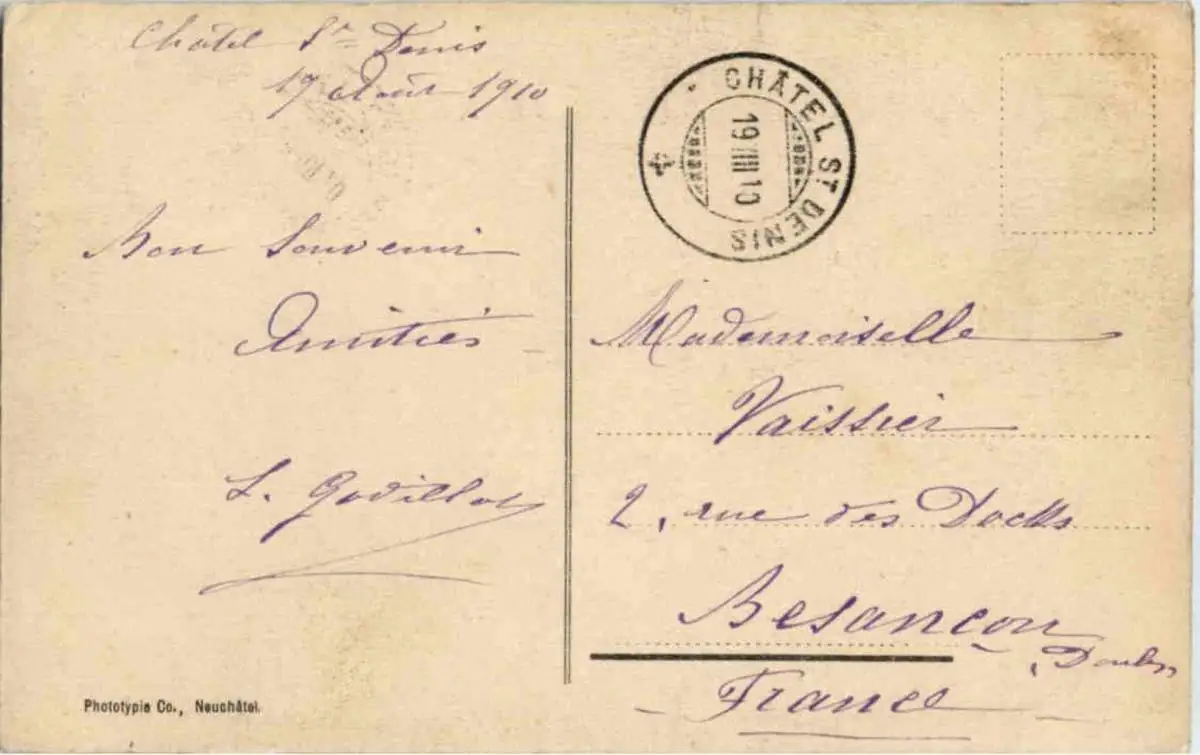 Châtel St Denis
17 Août 1910
Bon Souvenir
Amitiés
L. Godillot
Phototypie Co., Neuchâtel.
CHÂTEL ST DENIS
19 VIII 10
Mademoiselle
Vaissier
2, rue des Docks
Besançon
Doubs
France